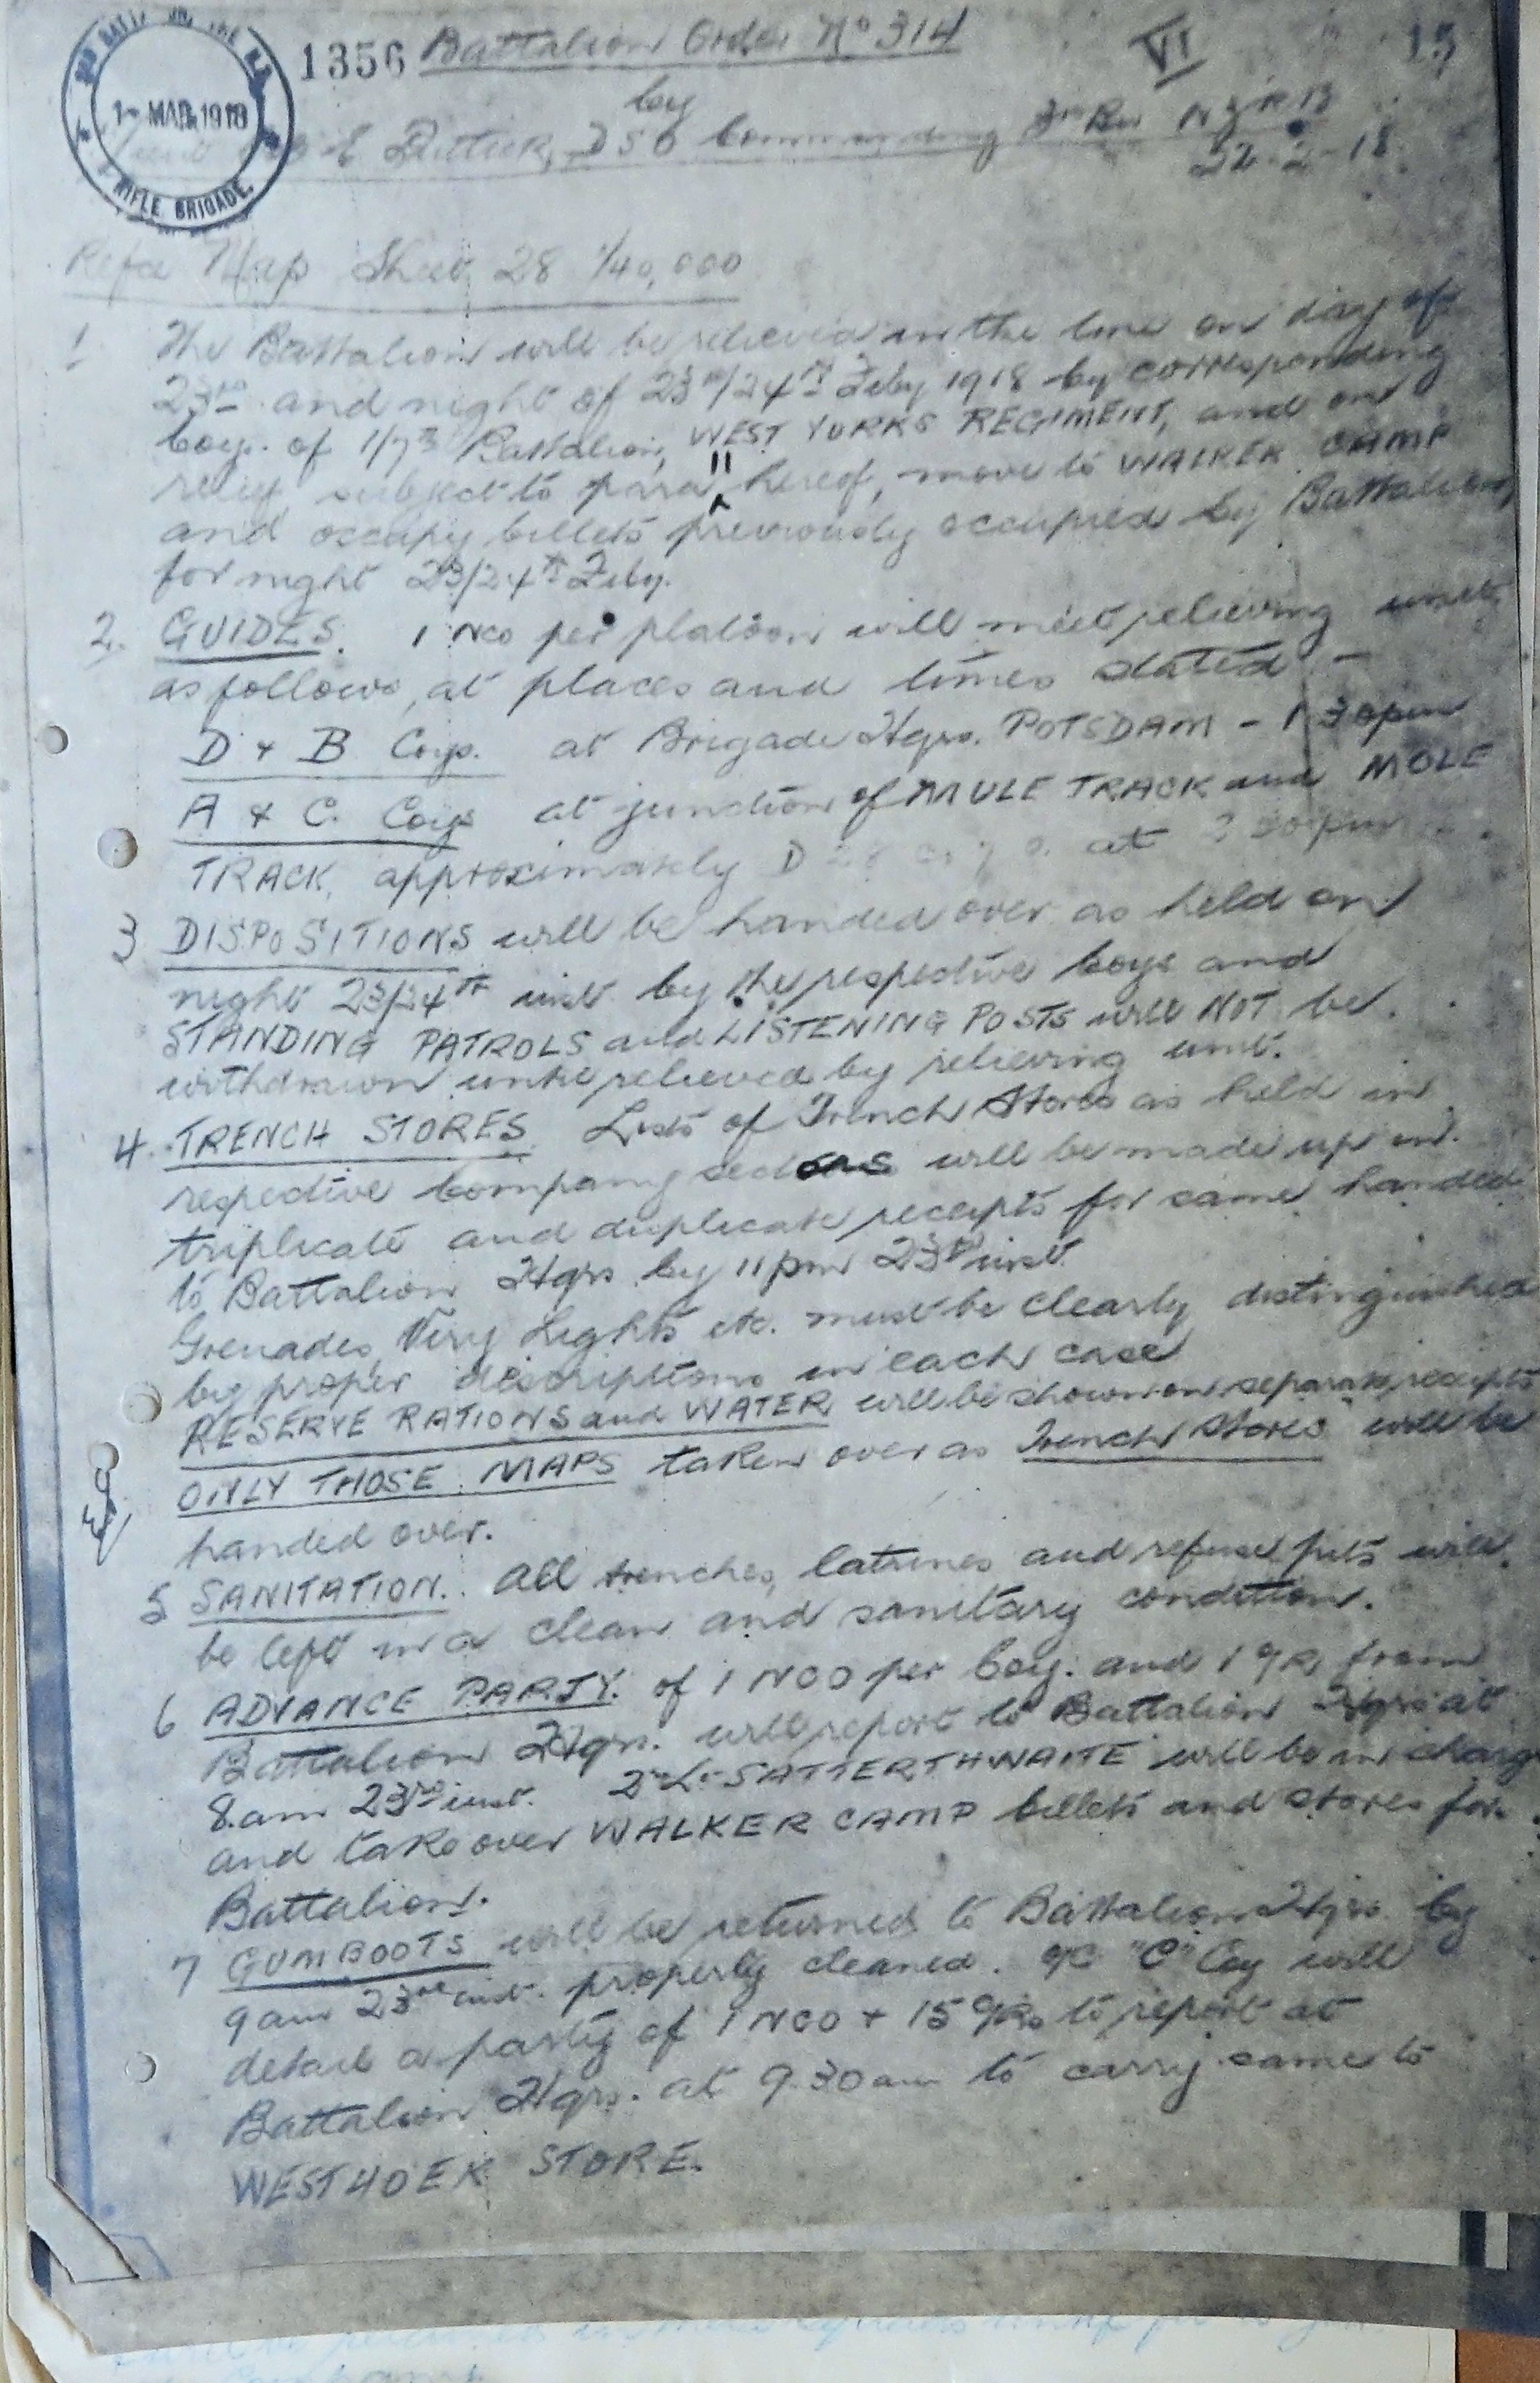 1356 Battalion Order No 314 VI 13
by
E Puttick, DSO Commanding 3rd Bn NZRB
22-2-18
1 - MAR. 1918
RIFLE BRIGADE.
Refce Map Sheet 28 1/40,000
1 The Battalion will be relieved in the line on day of
23rd and night of 23rd/24th Feby 1918 by corresponding
Coys. of 1/7th Battalion, WEST YORKS REGIMENT, and on
relief subject to para 11 hereof, move to WALKER CAMP
and occupy billets previously occupied by Battalion
for night 23/24th Feby.
2. GUIDES. 1 NCO per platoon will meet relieving unit
as follows, at places and times stated -
D + B Coys. at Brigade Hqrs. POTSDAM - 1 30pm
A & C. Coys at junction of MULE TRACK and MOLE
TRACK, approximately D at 30pm
3 DISPOSITIONS will be handed over as held on
night 23/24th inst. by the respective Coys and
STANDING PATROLS and LISTENING POSTS will NOT be
withdrawn until relieved by relieving unit.
4. TRENCH STORES. Lists of Trench Stores as held in
respective Company sectors will be made up in
triplicate and duplicate receipts for same handed
to Battalion Hqrs by 11pm 23rd inst.
Grenades, Very Lights etc. must be clearly distinguished
by proper descriptions in each case
RESERVE RATIONS and WATER will be shown on separate receipts
ONLY THOSE MAPS taken over as Trench Stores will be
handed over.
5 SANITATION. All trenches, latrines and refuse pits will
be left in a clean and sanitary condition.
6 ADVANCE PARTY. of 1 NCO per Coy. and 1 O/R from
Battalion Hqrs. will report to Battalion Hqrs at
8.am 23rd inst. 2nd Lt SATTERTHWAITE will be in charge
and take over WALKER CAMP billets and stores for
Battalion.
7 GUMBOOTS will be returned to Battalion Hqrs. by
9am 23rd inst. properly cleaned. O/C "C" Coy will
detail a party of 1 NCO + 15 O/Rs to report at
Battalion Hqrs. at 9.30am to carry same to
WESTHOEK STORE.